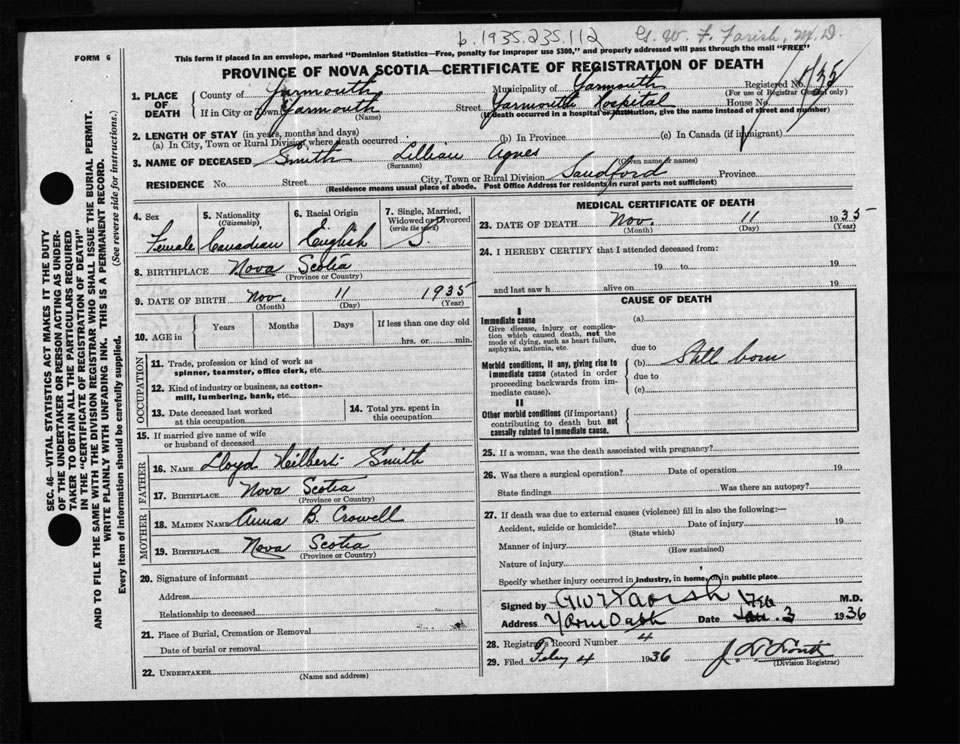 b. 1935.235.112 G. W. F. Farish, M.D.
FORM 6
This form if placed in an envelope, marked "Dominion Statistics—Free, penalty for improper use $300," and properly addressed will pass through the mail "FREE"
PROVINCE OF NOVA SCOTIA—CERTIFICATE OF REGISTRATION OF DEATH
1. PLACE OF DEATH County of Yarmouth Municipality of Yarmouth Registered No. (For use of Registrar General only)
If in City or Town Yarmouth (Name) Street Yarmouth Hospital House No.
(If death occurred in a hospital or institution, give the name instead of street and number)
2. LENGTH OF STAY (in years, months and days)
(a) In City, Town or Rural Division where death occurred (b) In Province (c) In Canada (if immigrant)
3. NAME OF DECEASED Smith Lillian Agnes
(Surname) (Given name or names)
RESIDENCE No. Street City, Town or Rural Division Sandford Province
(Residence means usual place of abode. Post Office Address for residents in rural parts not sufficient)
4. Sex Female
5. Nationality (Citizenship) Canadian
6. Racial Origin English
7. Single, Married, Widowed or Divorced (write the word) S.
8. BIRTHPLACE Nova Scotia
(Province or Country)
9. DATE OF BIRTH Nov. 11 1935
(Month) (Day) (Year)
10. AGE in Years Months Days If less than one day old
hrs. or min.
OCCUPATION
11. Trade, profession or kind of work as
spinner, teamster, office clerk, etc.
12. Kind of industry or business, as cotton-
mill, lumbering, bank, etc.
13. Date deceased last worked
at this occupation
14. Total yrs. spent in
this occupation
15. If married give name of wife
or husband of deceased
FATHER
16. NAME Lloyd Hilbert Smith
17. BIRTHPLACE Nova Scotia
(Province or Country)
MOTHER
18. MAIDEN NAME Anna B. Crowell
19. BIRTHPLACE Nova Scotia
(Province or Country)
20. Signature of informant
Address
Relationship to deceased
21. Place of Burial, Cremation or Removal
Date of burial or removal
22. UNDERTAKER
(Name and address)
MEDICAL CERTIFICATE OF DEATH
23. DATE OF DEATH Nov. 11 1935
(Month) (Day) (Year)
24. I HEREBY CERTIFY that I attended deceased from:
19 to 19
and last saw h alive on 19
CAUSE OF DEATH
I
Immediate cause
Give disease, injury or complica-
tion which caused death, not the
mode of dying, such as heart failure,
asphyxia, asthenia, etc.
(a)
due to
Morbid conditions, if any, giving rise to
immediate cause (stated in order
proceeding backwards from im-
mediate cause).
(b) Still born
due to
(c)
II
Other morbid conditions (if important)
contributing to death but not
causally related to immediate cause.
25. If a woman, was the death associated with pregnancy?
26. Was there a surgical operation? Date of operation 19
State findings Was there an autopsy?
27. If death was due to external causes (violence) fill in also the following:—
Accident, suicide or homicide? Date of injury 19
(State which)
Manner of injury
(How sustained)
Nature of injury
Specify whether injury occurred in industry, in home, or in public place
Signed by Geo W Farish M.D.
Address Yarmouth Date Feb 3 1936
28. Registrar's Record Number 4
29. Filed Feby 4 1936
(Division Registrar)
SEC. 46—VITAL STATISTICS ACT MAKES IT THE DUTY
OF THE UNDERTAKER OR PERSON ACTING AS UNDER-
TAKER TO OBTAIN ALL THE PARTICULARS REQUIRED
IN THE "CERTIFICATE OF REGISTRATION OF DEATH"
AND TO FILE THE SAME WITH THE DIVISION REGISTRAR WHO SHALL ISSUE THE BURIAL PERMIT.
WRITE PLAINLY WITH UNFADING INK. THIS IS A PERMANENT RECORD.
Every item of information should be carefully supplied. (See reverse side for instructions.)